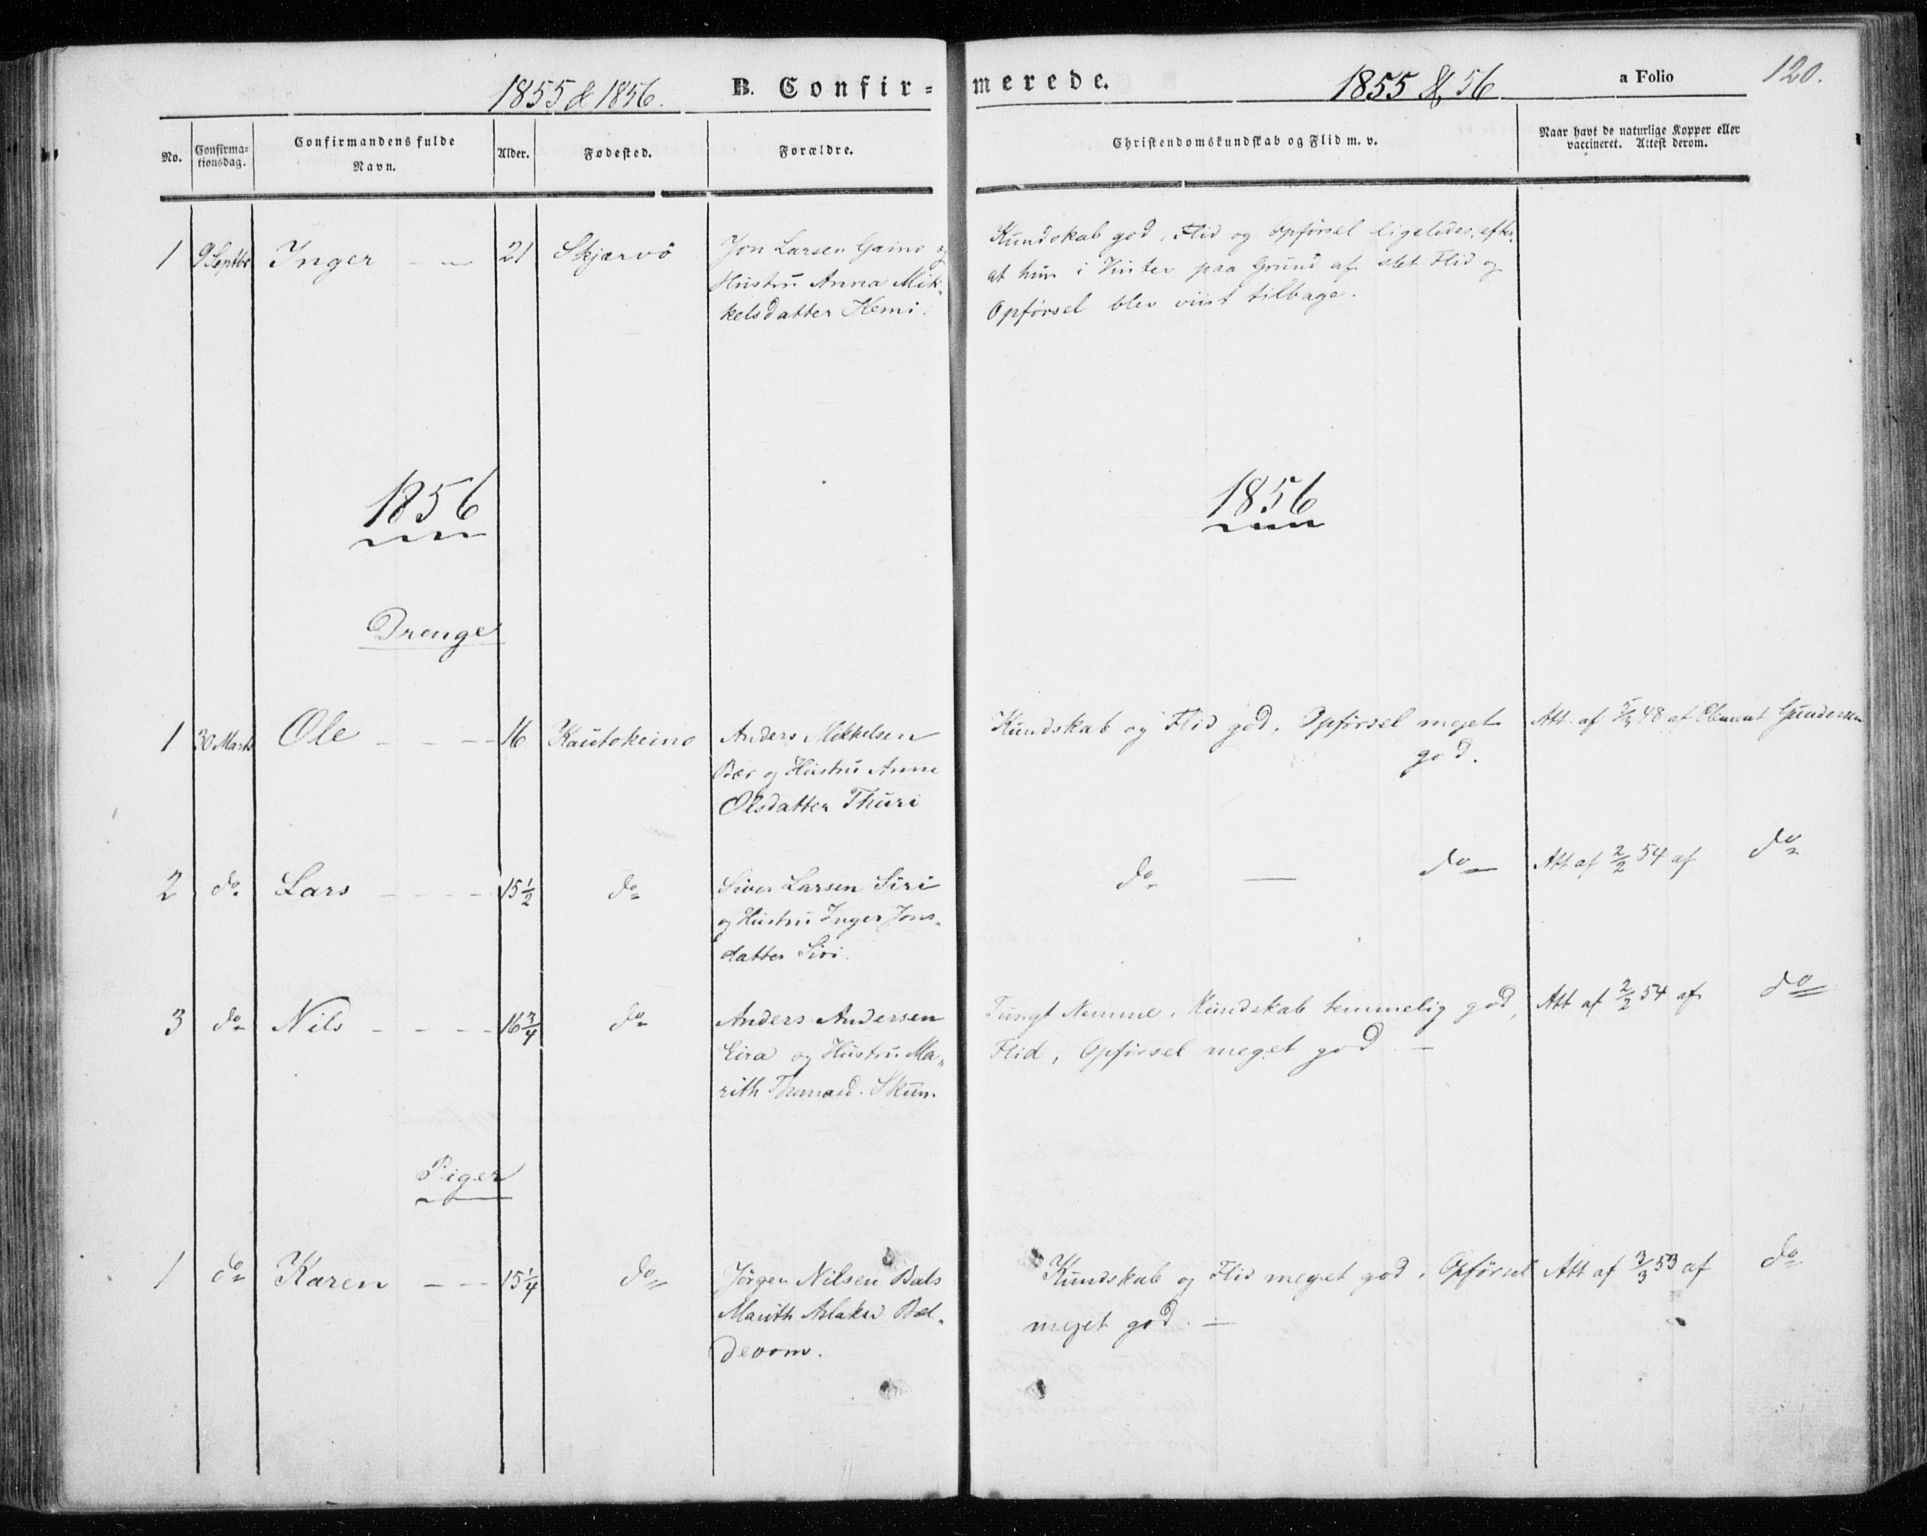 1855 & 1856. B. Confir= merede. 1855 & 56 a Folio 120.
No. Confirma-tionsdag. Confirmandens fulde Navn. Alder. Fodested. Forældre. Christendomskundskab og Flid m. v. Naar havt de naturlige Kopper eller vaccineret. Attest derom.
1 9 Septbr Inger — — 21 Skjærvö Jon Larsen Gaino og Kundskab god, Flid og Opførsel ligeledes, efter
Hustru Anna Mik- at hun i Vinter paa Grund af slet Flid og
kelsdatter Kemi. Opførsel blev viist tilbage.
1856 1856
Drenge
1 30 Marts Ole - - - 16 Kautokeino Anders Mikkelsen Kundskab og Flid god, Opførsel meget Att. af 5/3 48 af Clement Gundersen
Bær og Hustru Anne god.
Olsdatter Thuri
2 do Lars - - - - 15 1/2 do Siver Larsen Siri do — do Att af 2/2 54 af do
og Hustru Inger Jons-
datter Siri.
3 do Nils - - - - 16 3/4 do Anders Andersen Tungt Nemme, Kundskab temmelig god, Att af 2/2 54 af do
Eira og Hustru Ma- Flid, Opførsel meget god —
rith Thomasd. Skum.
Piger
1 do Karen - - - 15 1/4 do Jörgen Nilsen Bals Kundskab og Flid meget god, Opførsel Att af 3/3 53 af do
Marith Aslaksd Bæl- meget god. —
devom.